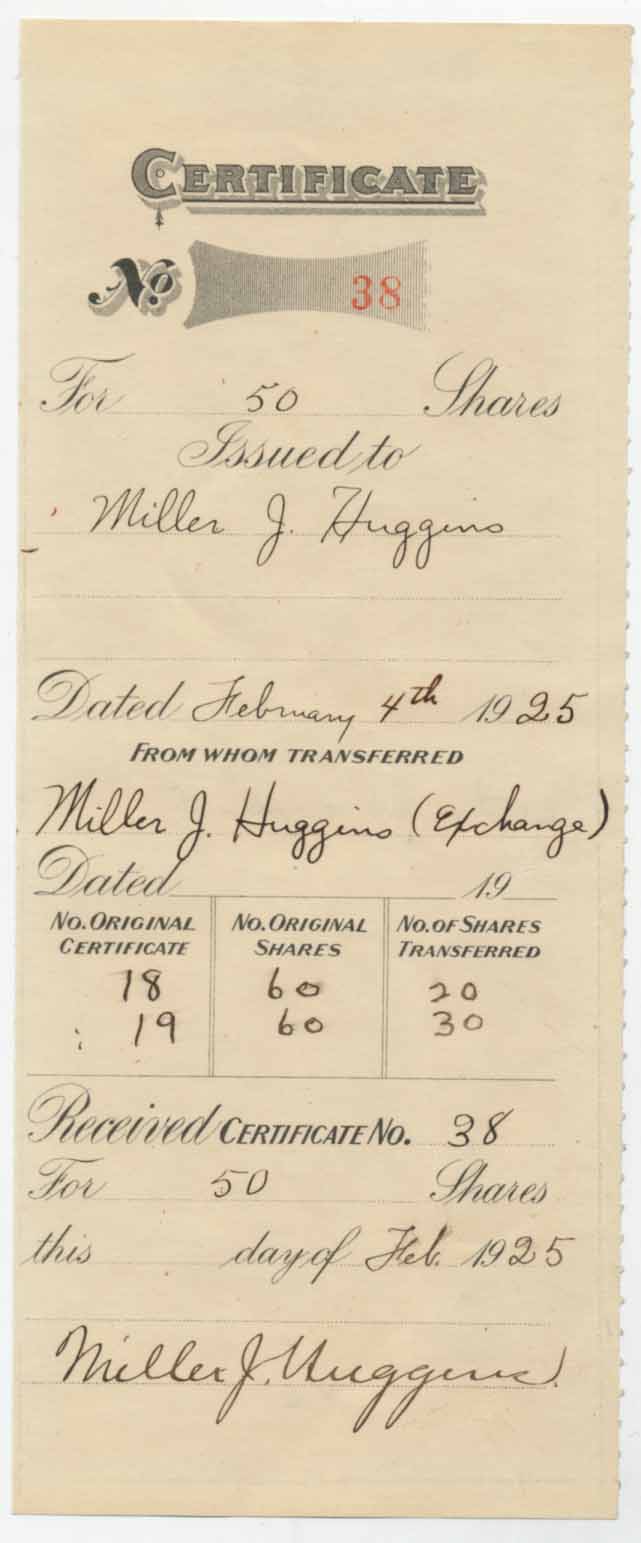 CERTIFICATE
No. 38
For 50 Shares
Issued to
Miller J. Huggins
Dated February 4th 1925
FROM WHOM TRANSFERRED
Miller J. Huggins (Exchange)
Dated 19
NO. ORIGINAL CERTIFICATE NO. ORIGINAL SHARES NO. OF SHARES TRANSFERRED
18 60 20
19 60 30
Received CERTIFICATE NO. 38
For 50 Shares
this day of Feb. 1925
Miller J. Huggins